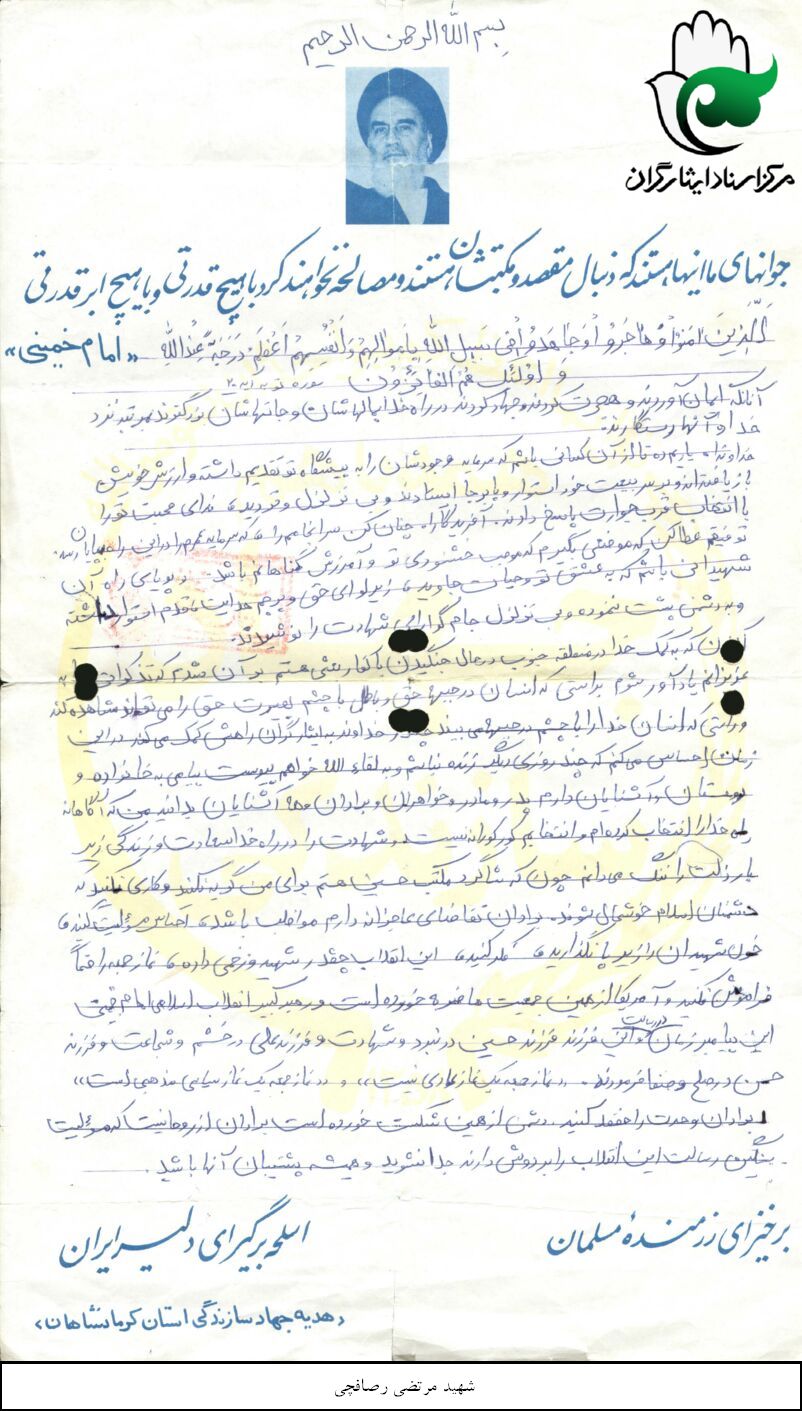 بسم الله الرحمن الرحیم
مرکز اسناد ایثارگران
جوانهای ما اینها هستند که دنبال مقصد و مکتبشان هستند و مصالحه نخواهند کرد با هیچ قدرتی و با هیچ ابرقدرتی
«امام خمینی»
اَلَّذینَ امَنوُا وَ هاجَروُا وَ جاهَدوُا فی سَبیلِ اللهِ بِاَموالِهِم وَ اَنْفُسِهِم اَعْظَمُ دَرَجَةً عِنْدَ اللهِ
وَ اولئِکَ هُمُ الفائِزُونَ سوره توبه آیه ۲۰
آنانکه ایمان آوردند و هجرت کردند و جهاد کردند در راه خدا بمالهاشان و جانهاشان بزرگترند بمرتبه نزد
خدا و آنها رستگارند.
خداوندا، یاریم ده تا از آن کسانی باشم که سرمایه وجودشان را به پیشگاه تو تقدیم داشته و ارزش خویش
باز یافته‌اند و بر سر بیعت خود استوار و پابرجا ایستادند و بی تزلزل و تردید، ندای محبت تو را
با انتخاب قرب جوارت پاسخ دادند. آفریدگارا، چنان کن سرانجامم را، که سرمایه عمرم را در این راه بپایان رسد.
توفیقم عطا کن که موضعی بگیرم که موجب خشنودی تو و آمرزش گناهانم باشد. و پویای راه آن
شهیدانی باشم که به عشق تو و حیات جاوید، زیر لوای حق و پرچم هدایت، قدم استوار داشته
و به دشمن پشت ننموده و بی تزلزل جام گوارای شهادت را نوشیدند.
اکنون که به کمک خدا در منطقه جنوب در حال جنگیدن با کفار بعثی هستم بر آن شدم که تذکراتی را به
عزیزانم یادآور شوم براستی که انسان در جبهه حق و باطل با چشم بصیرت حق را می‌تواند مشاهده کند
و راستی که انسان خدا را با چشم در جبهه‌ها می‌بیند چقدر خداوند به ایثارگران راهش کمک می‌کند در این
زمان احساس می‌کنم که چند روزی دیگر زنده نباشم و به لقاء الله خواهم پیوست پیامی به خانواده و
دوستان و آشنایان دارم پدر و مادر و خواهران و برادران و همه آشنایان بدانند من که آگاهانه
راه خدا را انتخاب کرده‌ام و انتخابم کورکورانه نیست و شهادت را در راه خدا سعادت و زندگی زیر
بار ذلت را ننگ می‌دانم چون که شاگرد مکتب حسین هستم برای من گریه نکنید و کاری نکنید که
دشمنان اسلام خوشحال شوند. برادران تقاضای عاجزانه دارم مواظب باشید، احساس مسؤلیت کنید،
خون شهیدان را زیر پا نگذارید، فکر کنید، این انقلاب چقدر شهید و زخمی داده، نماز جمعه را حتماً
فراموش نکنید و آمریکا از همین جمعیت ما ضربه خورده است و رهبر کبیر انقلاب اسلامی امام خمینی
این پیامبر زمان در رسالت و این فرزند حسین در نبرد و شهادت و فرزند علی در خشم و شجاعت و فرزند
حسن در صلح و صفا فرمودند. «نماز جمعه یک نماز عادی نیست» و «نماز جمعه یک نماز سیاسی مذهبی است»
برادران وحدت را حفظ کنید. دشمن از همین شکست خورده است برادران از روحانیت که مسؤلیت
سنگین رسالت این انقلاب را بر دوش دارند جدا نشوید و همیشه پشتیبان آنها باشید.
برخیز ای رزمندهٔ مسلمان
اسلحه برگیر ای دلیر ایران
«هدیه جهاد سازندگی استان کرمانشاهان»
شهید مرتضی رصافچی